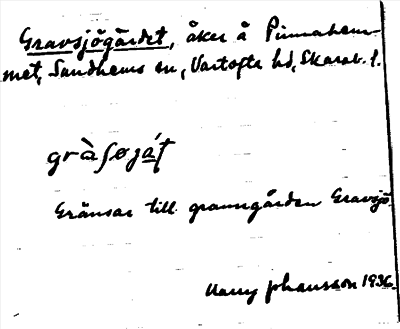 Gravsjögärdet, åker å Pinnahem-
met, Sandhems sn, Vartofta hd, Skarab. l.
gràſøját
Gränsar till granngården Gravsjö.
Harry Johansson 1936.